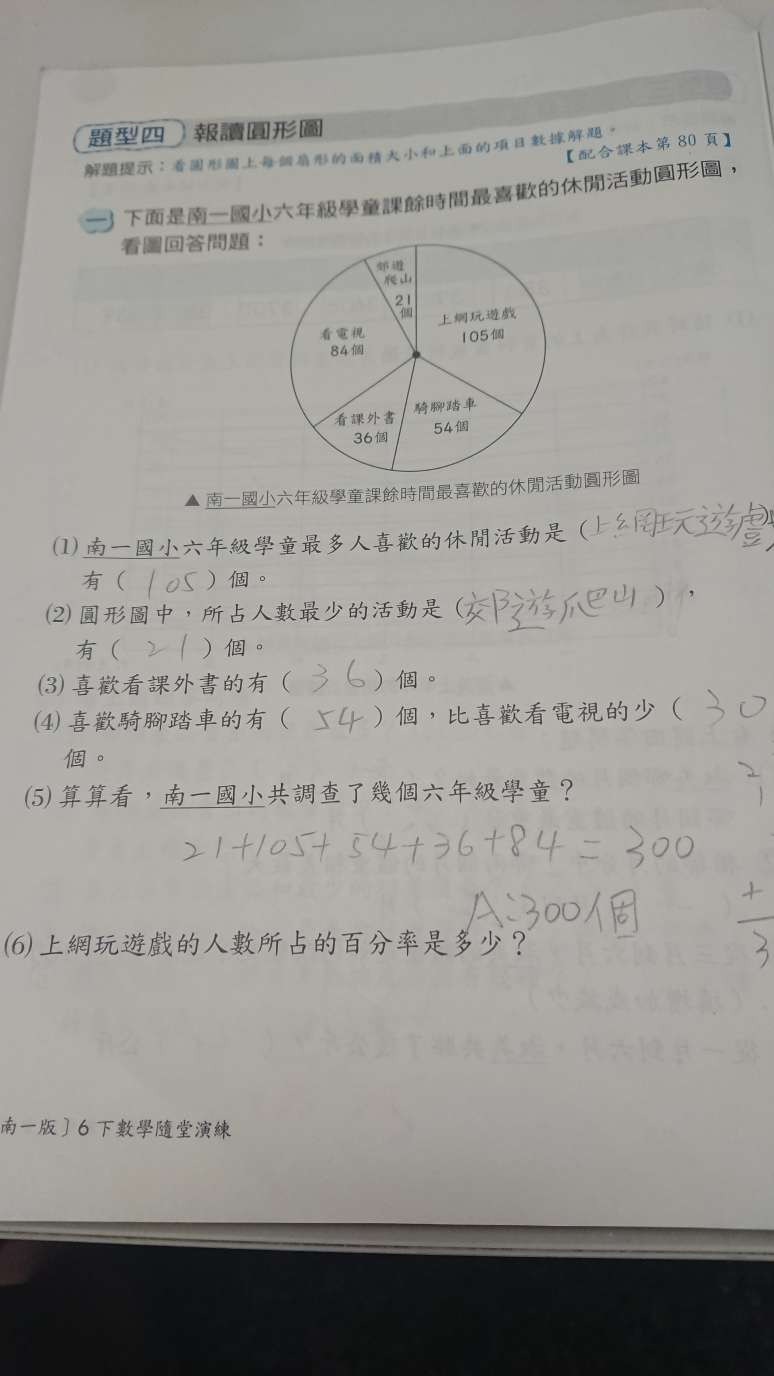 題型四 報讀圓形圖
解題提示：看圓形圖上每個扇形的面積大小和上面的項目數據解題。
【配合課本第 80 頁】
一 下面是南一國小六年級學童課餘時間最喜歡的休閒活動圓形圖，
看圖回答問題：
郊遊
爬山
21
個
上網玩遊戲
105個
看電視
84個
騎腳踏車
54個
看課外書
36個
▲ 南一國小六年級學童課餘時間最喜歡的休閒活動圓形圖
(1) 南一國小六年級學童最多人喜歡的休閒活動是（上網玩遊戲），
有（ 105 ）個。
(2) 圓形圖中，所占人數最少的活動是（郊遊爬山），
有（ 21 ）個。
(3) 喜歡看課外書的有（ 36 ）個。
(4) 喜歡騎腳踏車的有（ 54 ）個，比喜歡看電視的少（ 30
個。
(5) 算算看，南一國小共調查了幾個六年級學童？
21+105+54+36+84=300
A:300個
(6) 上網玩遊戲的人數所占的百分率是多少？
南一版〕6 下數學隨堂演練